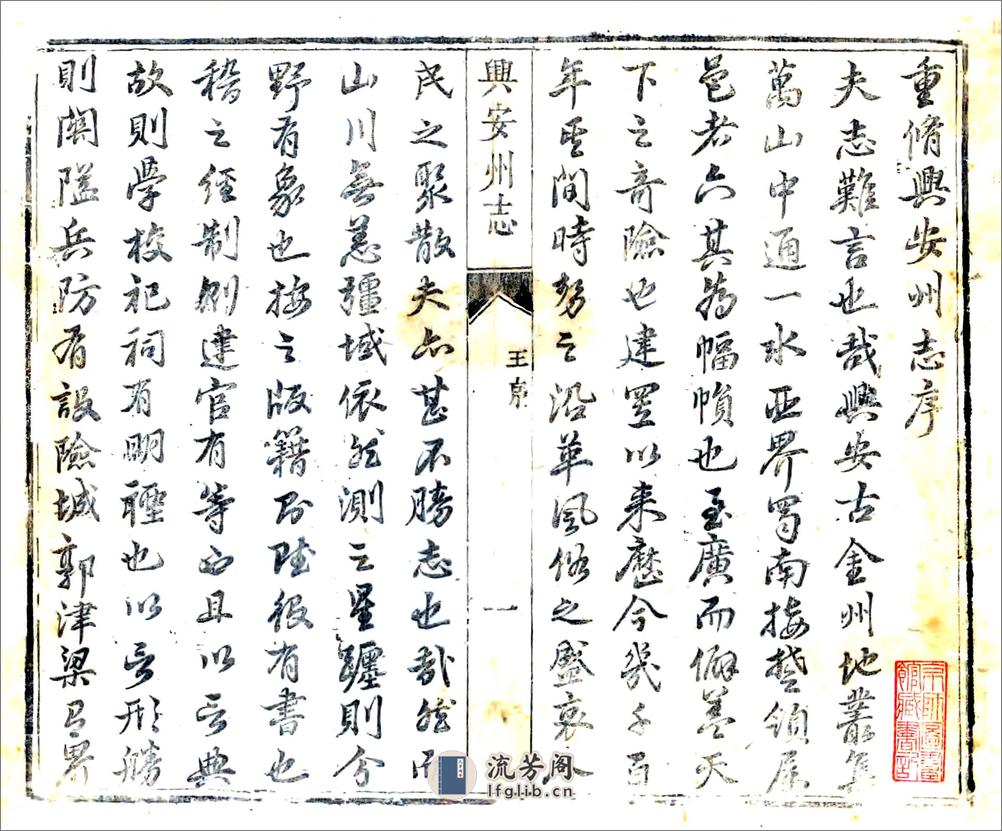 重脩興安州志序
夫志難言也哉興安古金州地叢集
萬山中通一水西界蜀南接楚領屬
邑者六其為幅幀也至廣而僻差天
下之奇險也建置以來歷今幾千百
年其間時勢之沿革風俗之盛衰人
興安州志
王序
一
民之聚散夫亦甚不勝志也哉然而
山川無恙疆域依然測之星躔則分
野有象也按之版籍則陸後有書也
稽之經制創建官有等而且以言典
故則學校祀祠有明禋也以言形勝
則關隘兵防有設險城郭津梁有界
京師圖書館藏書記
流芳阁
lfglib.cn